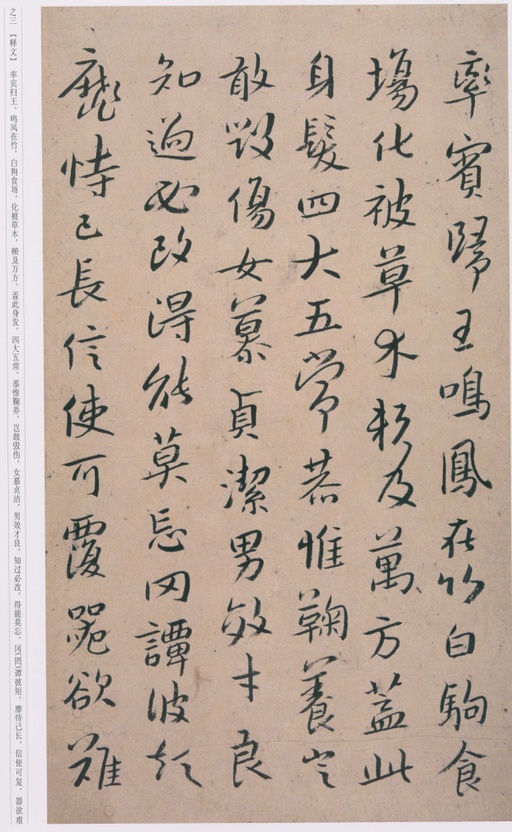 率賓歸王鳴鳳在竹白駒食
場化被草木賴及萬方蓋此
身髮四大五常恭惟鞠養豈
敢毀傷女慕貞潔男效才良
知過必改得能莫忘罔譚彼短
靡恃己長信使可覆器欲難
之三 【释文】 率宾归王，鸣凤在竹，白驹食场。化被草木，赖及万方。盖此身发，四大五常。恭惟鞠养，岂敢毁伤。女慕贞洁，男效才良。知过必改，得能莫忘。冈(罔)谭彼短，靡恃己长。信使可复，器欲难